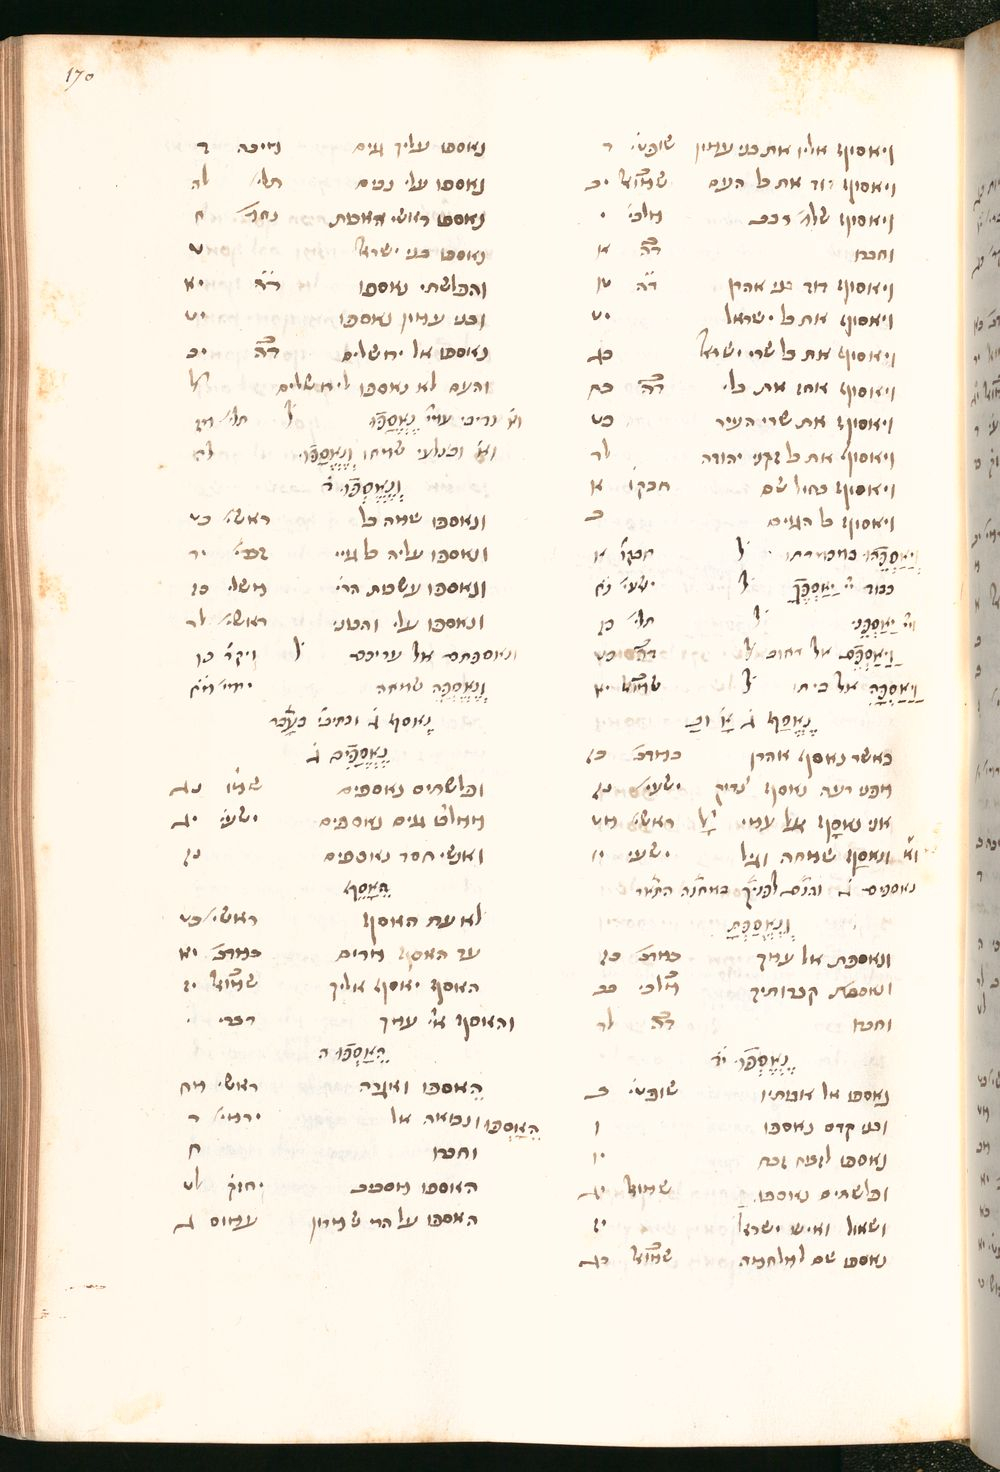 170
ויאסוף אליו את בני עמון שופטי׳ ג
ויאסוף דוד את כל העם שמואל יב
ויאסוף שלו׳ רכב מלכי׳ י
וחברו דה א
ויאסוף דוד בני אהרן דה טו
ויאסוף את כל ישראל יט
ויאסוף את כל שרי ישראל כג
ויאסוף אחז את כלי דה כח
ויאסוף את שרי העיר כט
ויאסוף את כל זקני יהודה לד
ויאסוף כחול שבי חבקו׳ א
ויאסוף כל הגוים ב
ויאספהו במכמרתו ל׳ חבקו׳ א
כבוד יי׳ יאספך ל׳ ישעי׳ נח
ויי׳ יאספני ל׳ תלי׳ כז
ויאספם אל רחוב ל׳ דה כט
ויאספה אל ביתו ל׳ שמואל יא
נאסף
כאשר נאסף אהרן במדב׳ כז
מפני רעה נאסף צדיק ישעי׳ נז
אני נאסף אל עמי ל׳ ראשי׳ מט
וא׳ ונאסף שמחה וגיל ישעי׳ יו
נאספים
ונאספת
ונאספת אל עמך במדב׳ כז
ונאספת קברותיך מלכי׳ כב
וחברו דה לד
נאספו יד
נאספו אל אבותיו שופטי׳ ב
ובני קדם נאספו ו
נאספו לזבוח זבח יו
ופלשתים נאספו שמואל יג
ושאול ואיש ישראל יז
נאספו שם למלחמה שמואל כג
נאספו עליך גוים מיכה ד
נאספו עלי נכים תלי׳ לה
נאספו ראשי האבות נחמ׳ ח
נאספו בני ישראל ט
והפלשתי׳ נאספו דה יא
ובני עמון נאספו יט
נאספו אל ירושלים דה יב
והעם לא נאספו לירושלים ל
וא׳ נדיבי עמי׳ נאספו ל׳ תלי׳ מז
וא׳ ובצלעי שמחו ונאספו לה
ונאספו ד
ונאספו שמה כל ראשי׳ כט
ונאספו עליה כל גויי זכרי׳ יב
ונאספו עשבות הרי׳ משלי כז
ונאספו עלי והכוני ראשי׳ לד
ונאספתם אל עריכם ל׳ ויקר׳ כו
ונאספה שמחה ירמי׳ מח
נאספים ג
ופלשתים נאספים שמו׳ יג
ממלכו׳ גוים נאספים ישעי׳ יג
ואנשי חסד נאספים נז
האסף
לא עת האסף ראשי׳ כט
עד האסף מרים במדב׳ יב
האסף יאסף אליך שמואל יז
והאסף אל עמך דברי׳
האספו ה
האספו ואגידה ראשי׳ מט
האספו ונבואה אל ירמי׳ ד
וחברו ח
האספו מסביב יחזק׳ לט
האספו על הרי שמרון עמוס ג